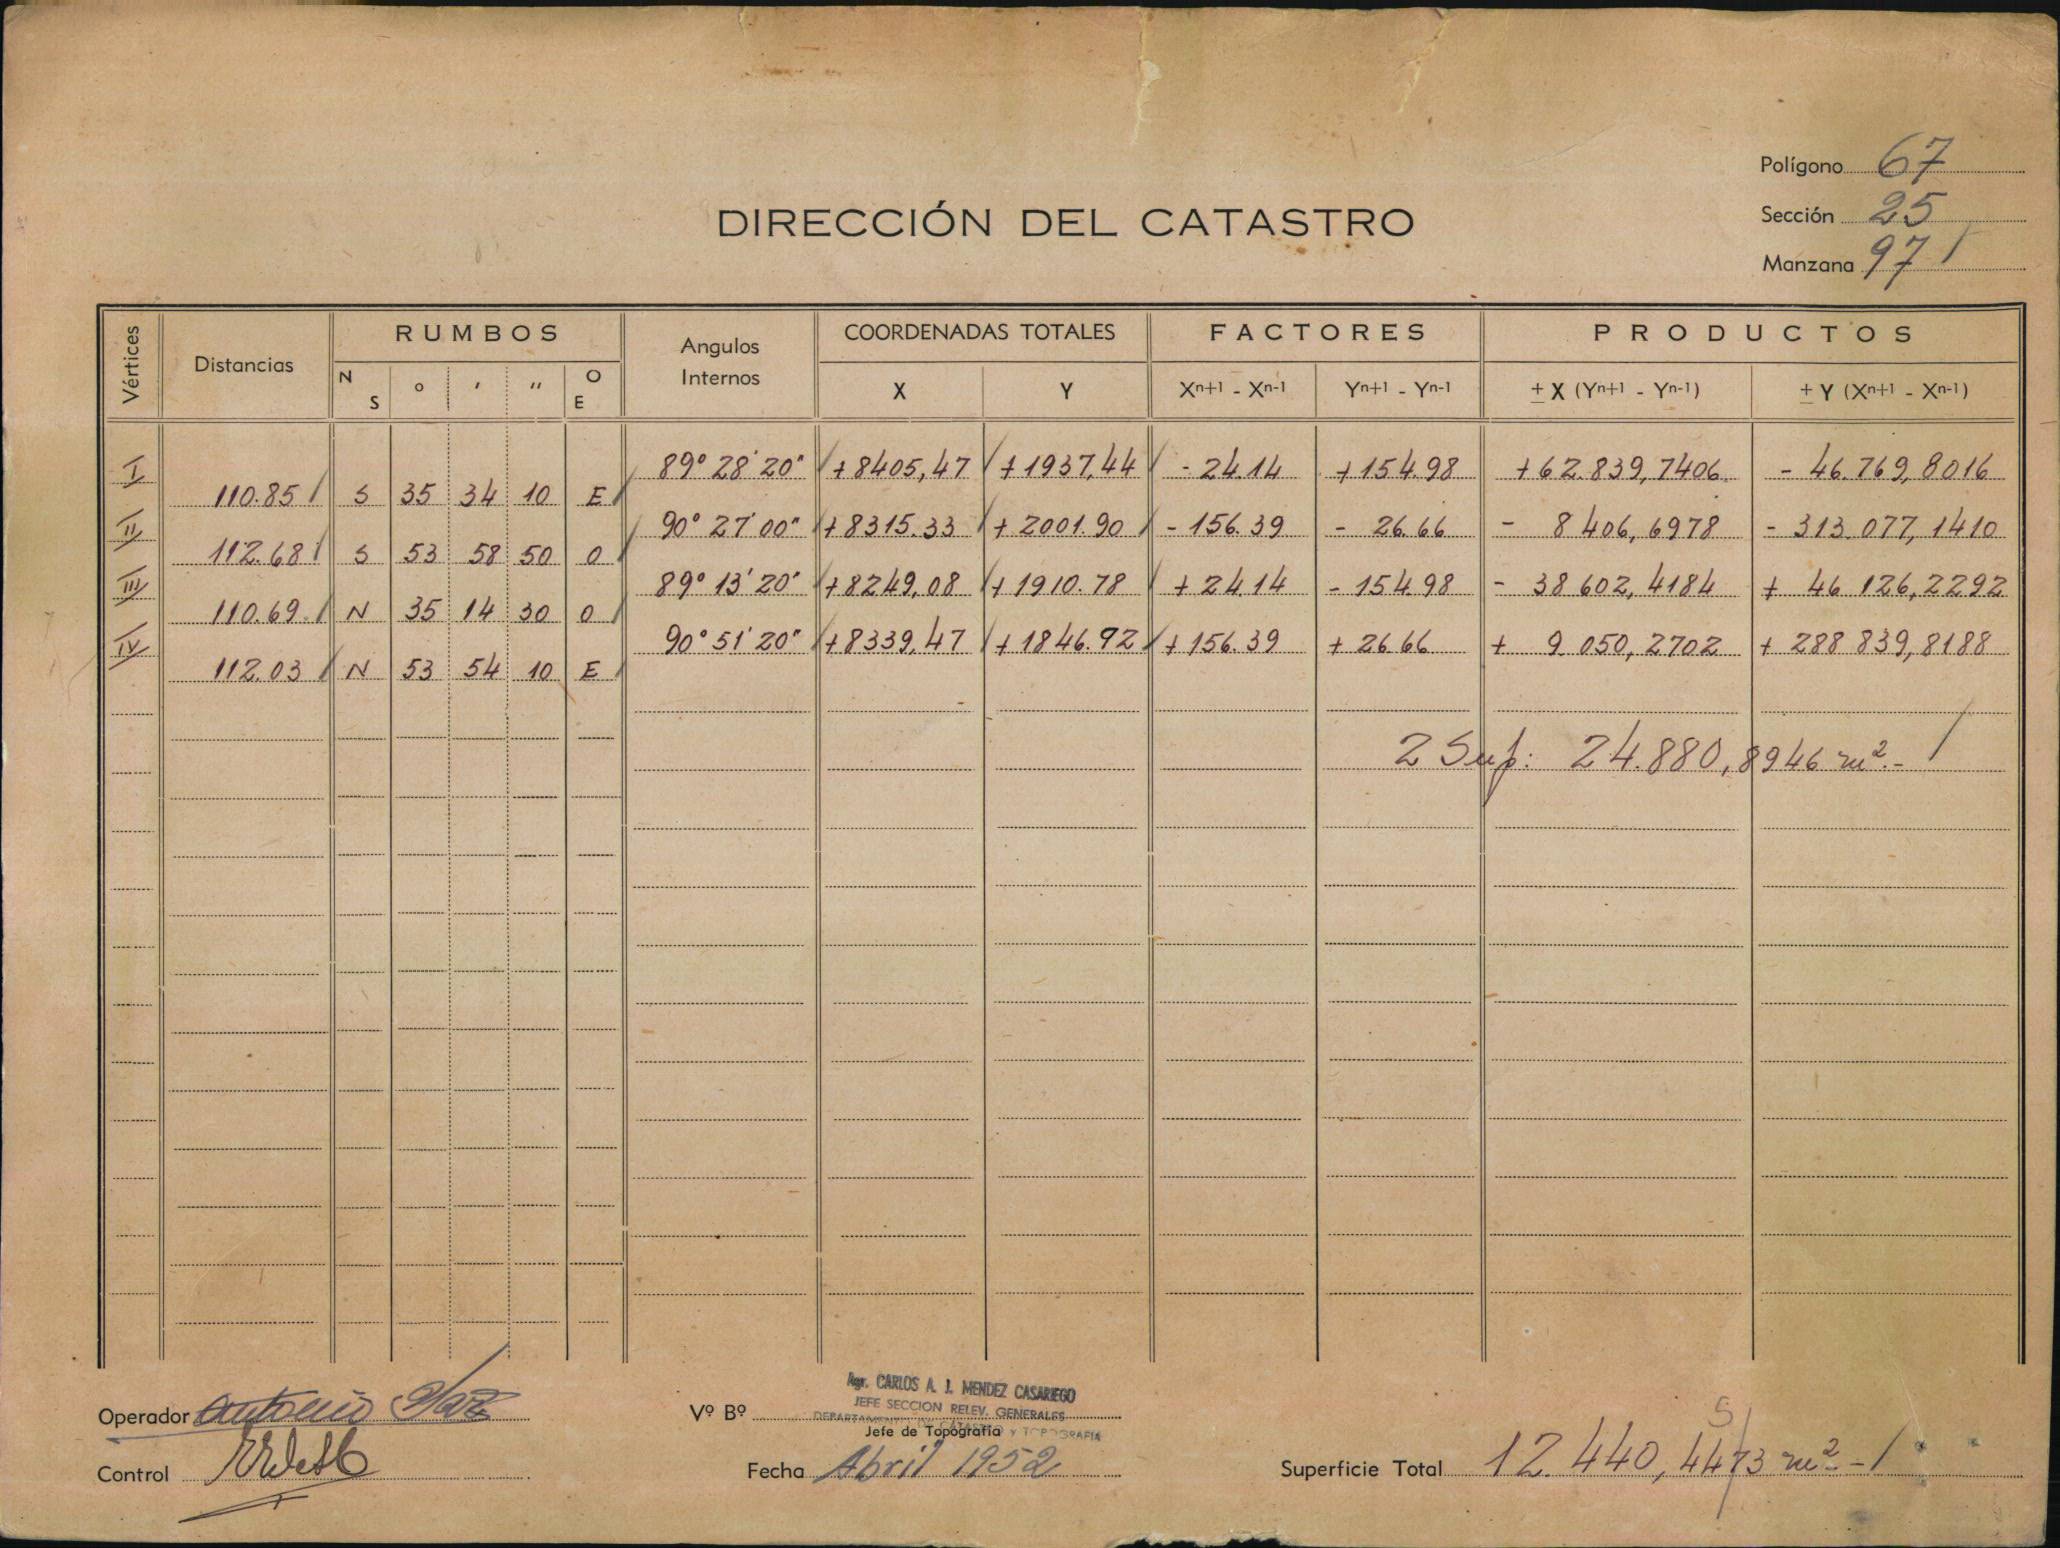 Polígono 67
Sección 25
Manzana 97
DIRECCIÓN DEL CATASTRO
Vértices Distancias RUMBOS Angulos Internos COORDENADAS TOTALES FACTORES PRODUCTOS
N S ° ' " O E X Y Xⁿ⁺¹ - Xⁿ⁻¹ Yⁿ⁺¹ - Yⁿ⁻¹ ± X (Yⁿ⁺¹ - Yⁿ⁻¹) ± Y (Xⁿ⁺¹ - Xⁿ⁻¹)
I 89° 28' 20" +8405,47 +1937,44 - 24.14 +154.98 +62.839,7406 - 46.769,8016
110.85 S 35 34 10 E
II 90° 27' 00" +8315.33 + 2001.90 - 156.39 - 26.66 - 8 406,6978 - 313.077,1410
112.68 S 53 58 50 O
III 89° 13' 20" +8249,08 +1910.78 + 24.14 - 154.98 - 38 602,4184 + 46 126,2292
110.69 N 35 14 30 O
IV 90° 51' 20" +8339,47 +1846.92 +156.39 + 26.66 + 9 050,2702 + 288 839,8188
112.03 N 53 54 10 E
2 Sup: 24.880,8946 m².-
Operador Antonio
Control
Vº Bº
Agr. CARLOS A. J. MENDEZ CASARIEGO
JEFE SECCION RELEV. GENERALES
DEPARTAMENTO DE CATASTRO y TOPOGRAFIA
Jefe de Topografía
Fecha Abril 1952
5
Superficie Total 12.440,4473 m².-